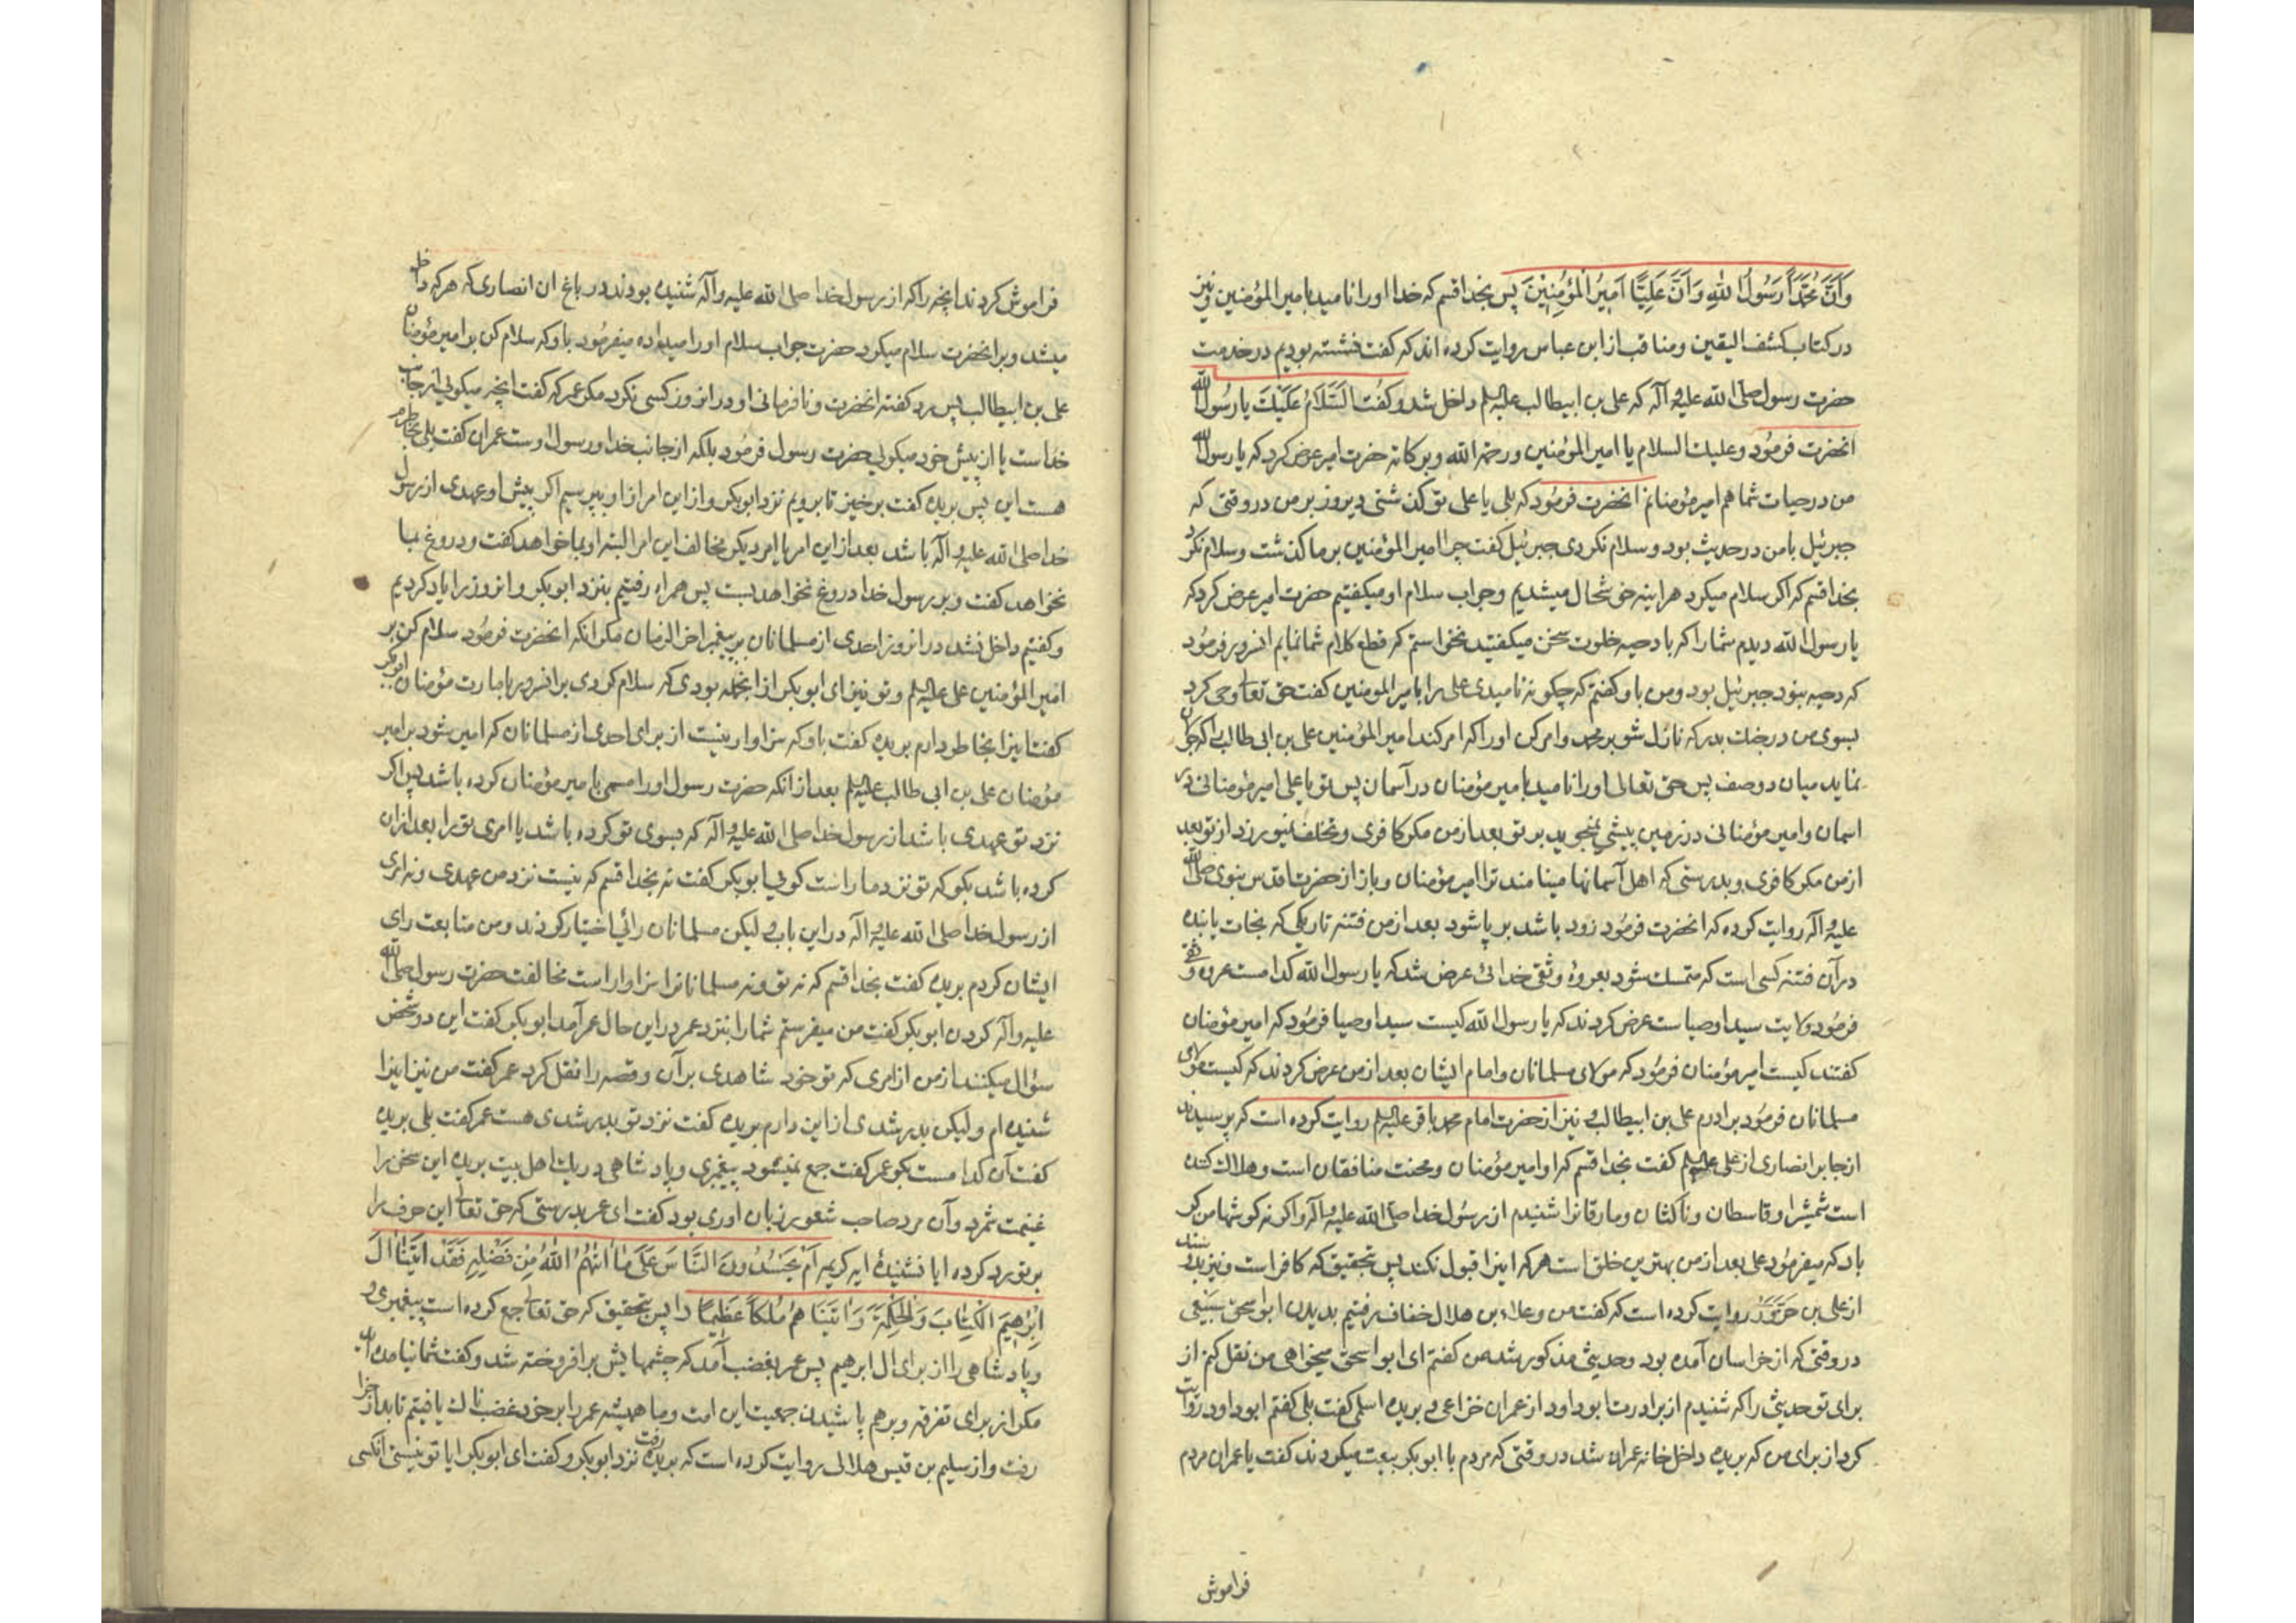 وَاَنَّ مُحَمَّدًا رَسُولُ اللهِ وَاَنَّ عَلِيًّا اَمِيرُ الْمُؤْمِنِينَ پس بخدا قسم که خدا او را نامید بامیر المؤمنین و نیز
در کتاب کشف الیقین و مناقب از ابن عباس روایت کرده اند که گفت نشسته بودیم در خدمت
حضرت رسول صلی الله علیه و آله که علی بن ابیطالب علیه السلم داخل شد و گفت اَلسَّلامُ عَلَیْكَ یا رَسُولَ الله
انحضرت فرمود وعلیك السلام یا امیر المؤمنین ورحمة الله وبرکاته حضرت امیر عرض کرد که یا رسول الله
من در حیات شما هم امیر مؤمنانم انحضرت فرمود که بلی یا علی تو گذشتی دیروز بر من در وقتی که
جبرئیل با من در حدیث بود و سلام نکردی جبرئیل گفت چرا امیر المؤمنین بر ما گذشت و سلام نکرد
بخدا قسم که اگر سلام میکرد هراینه خوشحال میشدیم وجواب سلام او میکفتیم حضرت امیر عرض کرد که
یا رسول الله دیدم شما را که با دحیه خلوت سخن میکفتید نخواستم که قطع کلام شما نمایم انسرور فرمود
که دحیه نبود جبرئیل بود و من باو گفتم که چکونه نامیدی علی را بامیر المومنین گفت حق تعالی وحی کرد
بسوی من در جنك بدر که نازل شو بر محمد وامر کن او را که امر کند امیر المؤمنین علی بن ابی طالب را که جولان
نماید میان دو صف پس حق تعالی او را نامید بامیر مؤمنان در آسمان پس تو یا علی امیر مؤمنانی در
اسمان وامیر مؤمنانی در زمین پیشی نمیجوید بر تو بعد از من مکر کافری و تخلف نمیورزد از تو بعد
از من مکر کافری و بدرستی که اهل آسمانها مینامند ترا امیر مؤمنان و باز از حضرت اقدس نبوی صلی الله
علیه و اله روایت کرده که انحضرت فرمود زود باشد بر پا شود بعد از من فتنه تاریکی که نجات یابنده
در آن فتنه کسی است که متمسك شود بعروهٔ وثقی خدائی عرض شد که یا رسول الله کدامست عروه وثقی
فرمود ولایت سید اوصیاست عرض کردند که یا رسول الله کیست سید اوصیا فرمود که امیر مؤمنان
کفتند کیست امیر مؤمنان فرمود که مولای مسلمانان وامام ایشان بعد از من عرض کردند که کیست مولای
مسلمانان فرمود برادرم علی بن ابیطالب و نیز از حضرت امام محمد باقر علیه السلم روایت کرده است که پرسیدند
از جابر انصاری از علی علیه السلم کفت بخدا قسم که او امیر مؤمنان و محنت منافقان است وهلاك کننده
است شمشیر او قاسطان وناکثان ومارقانرا شنیدم از رسول خدا صلی الله علیه و آله واکر نه کوشها من کر
باد که میفرمود علی بعد از من بهترین خلق است هر که اینرا قبول نکند پس بتحقیق که کافر است و نیز بسند
از علی بن حزور روایت کرده است که کفت من وعلاء بن هلال خفاف رفتیم بدیدن ابو اسحق سبیعی
در وقتی که از خراسان آمده بود وحدیثی مذکور شد من کفتم ای ابو اسحق میخواهی من نقل کنم از
برای تو حدیثی را که شنیدم از برادرت ابو داود از عمران خزاعی و بریده اسلمی کفت بلی کفتم ابو داود روایت
کرد از برای من که بریده داخل خانه عمران شد در وقتی که مردم با ابو بکر بیعت میکردند کفت یا عمران مردم
فراموش
فراموش کردند انچه را که از رسول خدا صلی الله علیه وآله شنیده بودند در باغ ان انصاری که هر که داخل
میشد و بر انحضرت سلام میکرد حضرت جواب سلام او را میداده میفرمود باو که سلام کن بر امیر مؤمنان
علی بن ابیطالب پس رد کفته انحضرت ونافرمانی او در انروز کسی نکرد مکر عمر که کفت انچه میکوئی از جانب
خداست یا از پیش خود میکوئی حضرت رسول فرمود بلکه از جانب خدا و رسول اوست عمران کفت بلی بخاطرم
هست این پس بریده کفت برخیز تا برویم نزد ابو بکر و از این امر از او بپرسیم اکر پیش او عهدی از رسول
خدا صلی الله علیه و آله باشد بعد از این امر یا امر دیکر مخالف این امر البته او بما خواهد کفت ودروغ بما
نخواهد کفت و بر رسول خدا دروغ نخواهد بست پس همراه رفتیم بنزد ابو بکر و انروز را یاد کردیم
وکفتیم داخل نشد در انروز احدی از مسلمانان بر پیغمبر اخر الزمان مکر انکه انحضرت فرمود سلام کن بر
امیر المؤمنین علی علیه السلم وتو نیز ای ابو بکر از انجمله بودی که سلام کردی بر انسرور بامارت مؤمنان ابو بکر
کفت اینرا بخاطر دارم بریده کفت باو که سزاوار نیست از برای احدی از مسلمانان که امیر شود بر امیر
مؤمنان علی بن ابی طالب علیه السلم بعد از انکه حضرت رسول او را مسمی بامیر مؤمنان کرده باشد پس اکر
نزد تو عهدی باشد از رسول خدا صلی الله علیه و اله که بسوی تو کرده باشد یا امری تو را بعد از ان
کرده باشد بکو که تو نزد ما راست کوئی ابو بکر کفت نه بخدا قسم که نیست نزد من عهدی و نه امری
از رسول خدا صلی الله علیه و اله در این باب ولیکن مسلمانان رائی اختیار کردند ومن متابعت رای
ایشان کردم بریده کفت بخدا قسم که نه تو و نه مسلمانانرا سزاوار است مخالفت حضرت رسول صلی الله
علیه وآله کردن ابو بکر کفت من میفرستم شما را بنزد عمر در این حال عمر آمد ابو بکر کفت این دو شخص
سؤال میکنند از من از امری که تو خود شاهدی بر آن وقصه را نقل کرد عمر کفت من نیز اینرا
شنیده ام ولیکن بدر شدی از این دارم بریده کفت نزد تو بدر شدی هست عمر کفت بلی بریده
کفت آن کدامست بکو عمر کفت جمع نمیشود پیغمبری وپادشاهی در یك اهل بیت بریده این سخن را
غنیمت شمرد وآن مرد صاحب شعور زبان آوری بود کفت ای عمر بدرستی که حق تعالی این حرف را
بر تو رد کرده ایا نشنیدهٔ ایه کریمه اَمْ یَحْسُدُونَ النَّاسَ عَلَی مَا اٰتٰهُمُ اللهُ مِنْ فَضْلِهِ فَقَدْ اٰتَیْنَا اٰلَ
اِبْرٰهِیمَ الْکِتَابَ وَالْحِکْمَةَ وَاٰتَیْنَاهُمْ مُلْکًا عَظِیمًا را پس بتحقیق که حق تعالی جمع کرده است پیغمبری
وپادشاهی را از برای ال ابرهیم پس عمر بغضب آمد که چشمهایش برافروخته شد وکفت شما نیامده اید
مکر از برای تفرقه و برهم پاشیدن جمعیت این امت وما همیشه عمر را بر خود غضب ناك یافتیم تا بدار جزا
رفت واز سلیم بن قیس هلالی روایت کرده است که بریده رفت نزد ابو بکر وکفت ای ابو بکر ایا تو نیستی انکسی